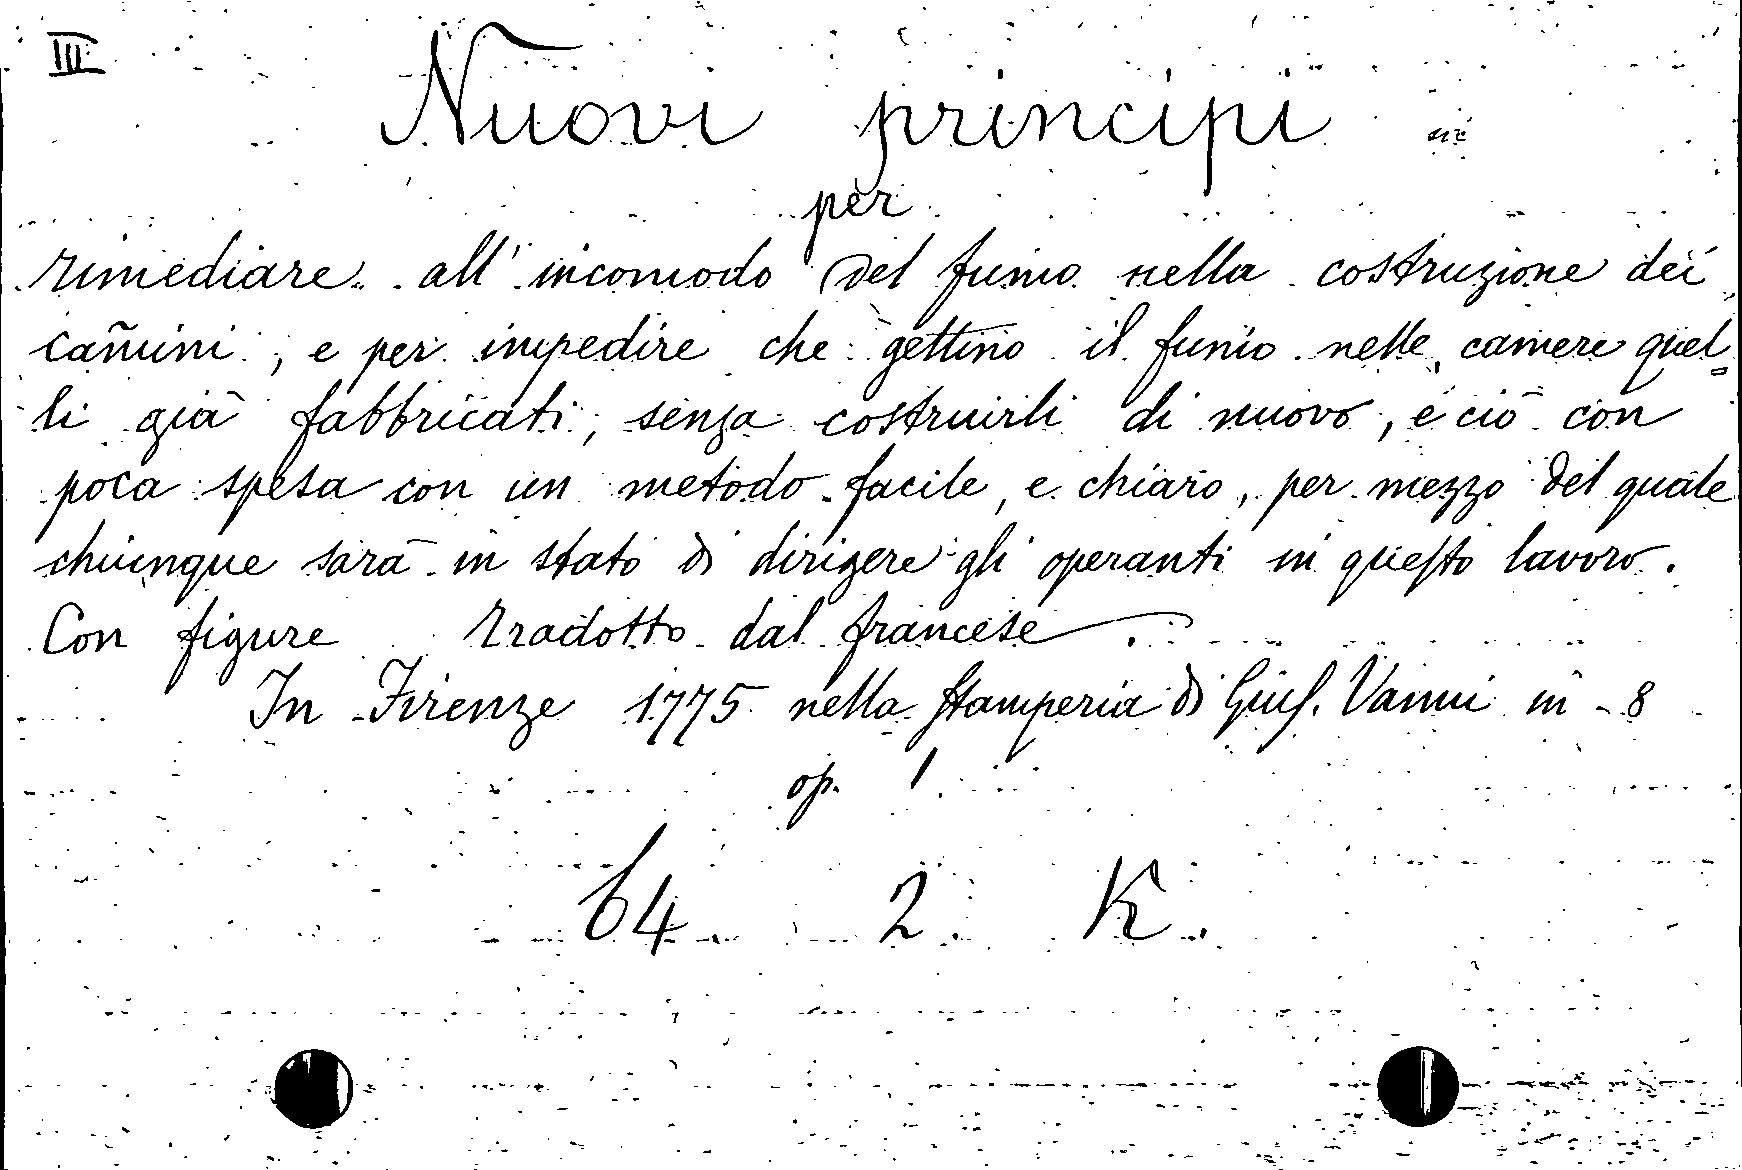 III
Nuovi principi
per
rimediare all' incomodo del fumo nella costruzione dei
cam̃ini, e per impedire che gettino il fumo nelle camere quel=
li già fabbricati, senza costruirli di nuovo, e ciò con
poca spesa con un metodo facile, e chiaro, per mezzo del quale
chiunque sarà in stato di dirigere gli operanti in questo lavoro.
Con figure Tradotto dal francese.
In Firenze 1775 nella Stamperia di Gius. Vanni in-8
op. 1
64. 2. K.